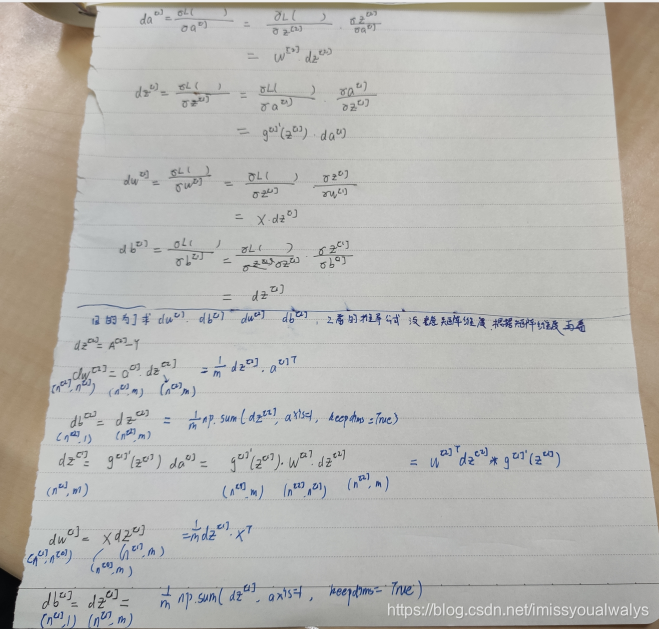 da^[1] = σL( )/σa^[1] = σL( )/σz^[2] · σz^[2]/σa^[1]
= W^[2] · dz^[2]
dz^[1] = σL( )/σz^[1] = σL( )/σa^[1] · σa^[1]/σz^[1]
= g^[1]'(z^[1]) · da^[1]
dw^[1] = σL( )/σw^[1] = σL( )/σz^[1] · σz^[1]/σw^[1]
= X · dz^[1]
db^[1] = σL( )/σb^[1] = σL( )/σz^[1] · σz^[1]/σb^[1]
= dz^[1]
目的为了求 dw^[1] db^[1] dw^[2] db^[2], 上面的推导公式 没考虑矩阵维度, 根据矩阵维度
dz^[2] = A^[2] - Y
dw^[2] = a^[1] · dz^[2] = 1/m dz^[2] · a^[1]T
(n^[2], n^[1]) (n^[1], m) (n^[2], m)
db^[2] = dz^[2] = 1/m np.sum(dz^[2], axis=1, keepdims=True)
(n^[2], 1) (n^[2], m)
dz^[1] = g^[1]'(z^[1]) da^[1] = g^[1]'(z^[1]) · W^[2] · dz^[2] = W^[2]T dz^[2] * g^[1]'(z^[1])
(n^[1], m) (n^[1], m) (n^[2], n^[1]) (n^[2], m)
dw^[1] = X dz^[1] = 1/m dz^[1] · X^T
(n^[1], n^[0]) (n^[0], m) (n^[1], m)
db^[1] = dz^[1] = 1/m np.sum(dz^[1], axis=1, keepdims=True)
(n^[1], 1) (n^[1], m)
https://blog.csdn.net/imissyoualwalys